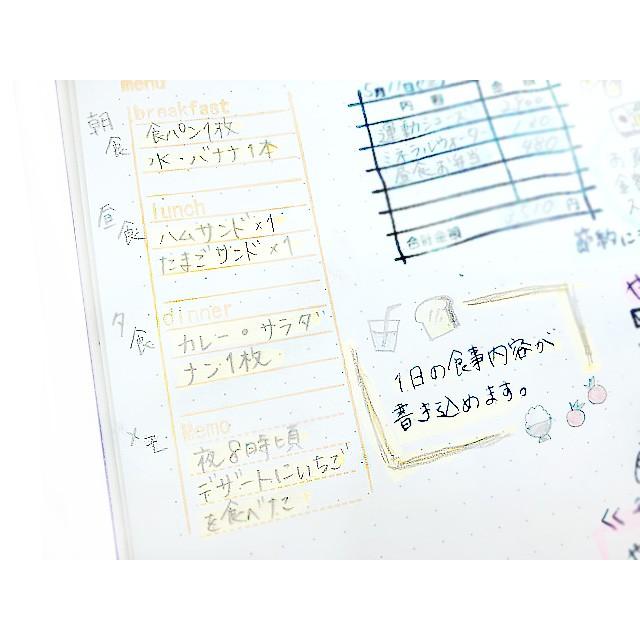 menu
朝食
breakfast
食パン1枚
水・バナナ1本
昼食
lunch
ハムサンド×1
たまごサンド×1
夕食
dinner
カレー・サラダ
ナン1枚
メモ
Memo
夜8時頃
デザートにいちご
を食べた
5月11日
内容
運動シューズ
ミネラルウォーター
昼食お弁当 480
合計金額 円
節約に
1日の食事内容が
書き込めます。